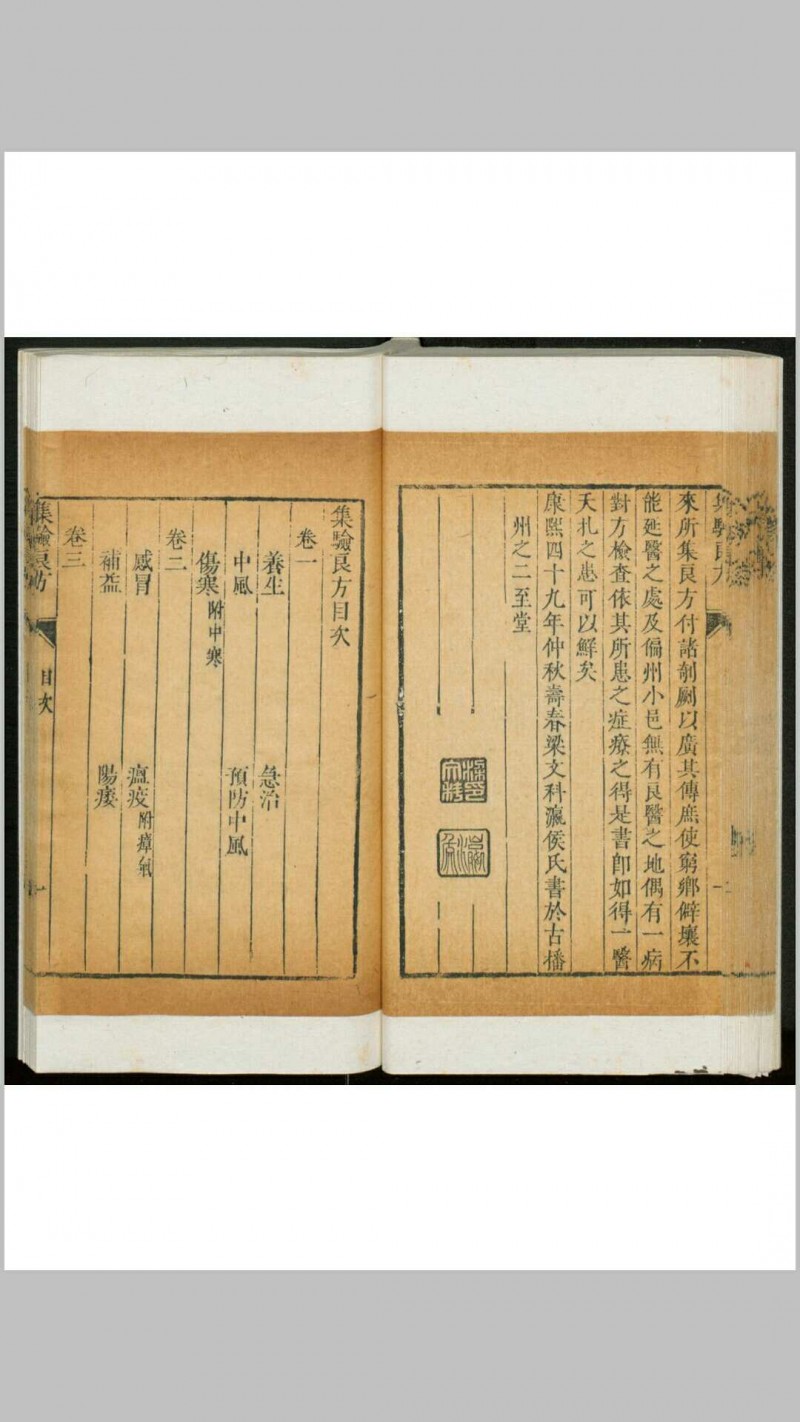 集驗良方
來所集良方付諸剞劂以廣其傳庶使窮鄉僻壤不
能延醫之處及偏州小邑無有良醫之地偶有一病
對方檢查依其所患之症療之得是書卽如得一醫
夭札之患可以鮮矣
康熙四十九年仲秋壽春梁文科瀛侯氏書於古播
州之二至堂
集驗良方目次
卷一
養生 急治
中風 預防中風
傷寒附中寒
卷二
感冒 瘟疫附瘴氣
補益 陽痿
卷三
集驗良方 目次 一